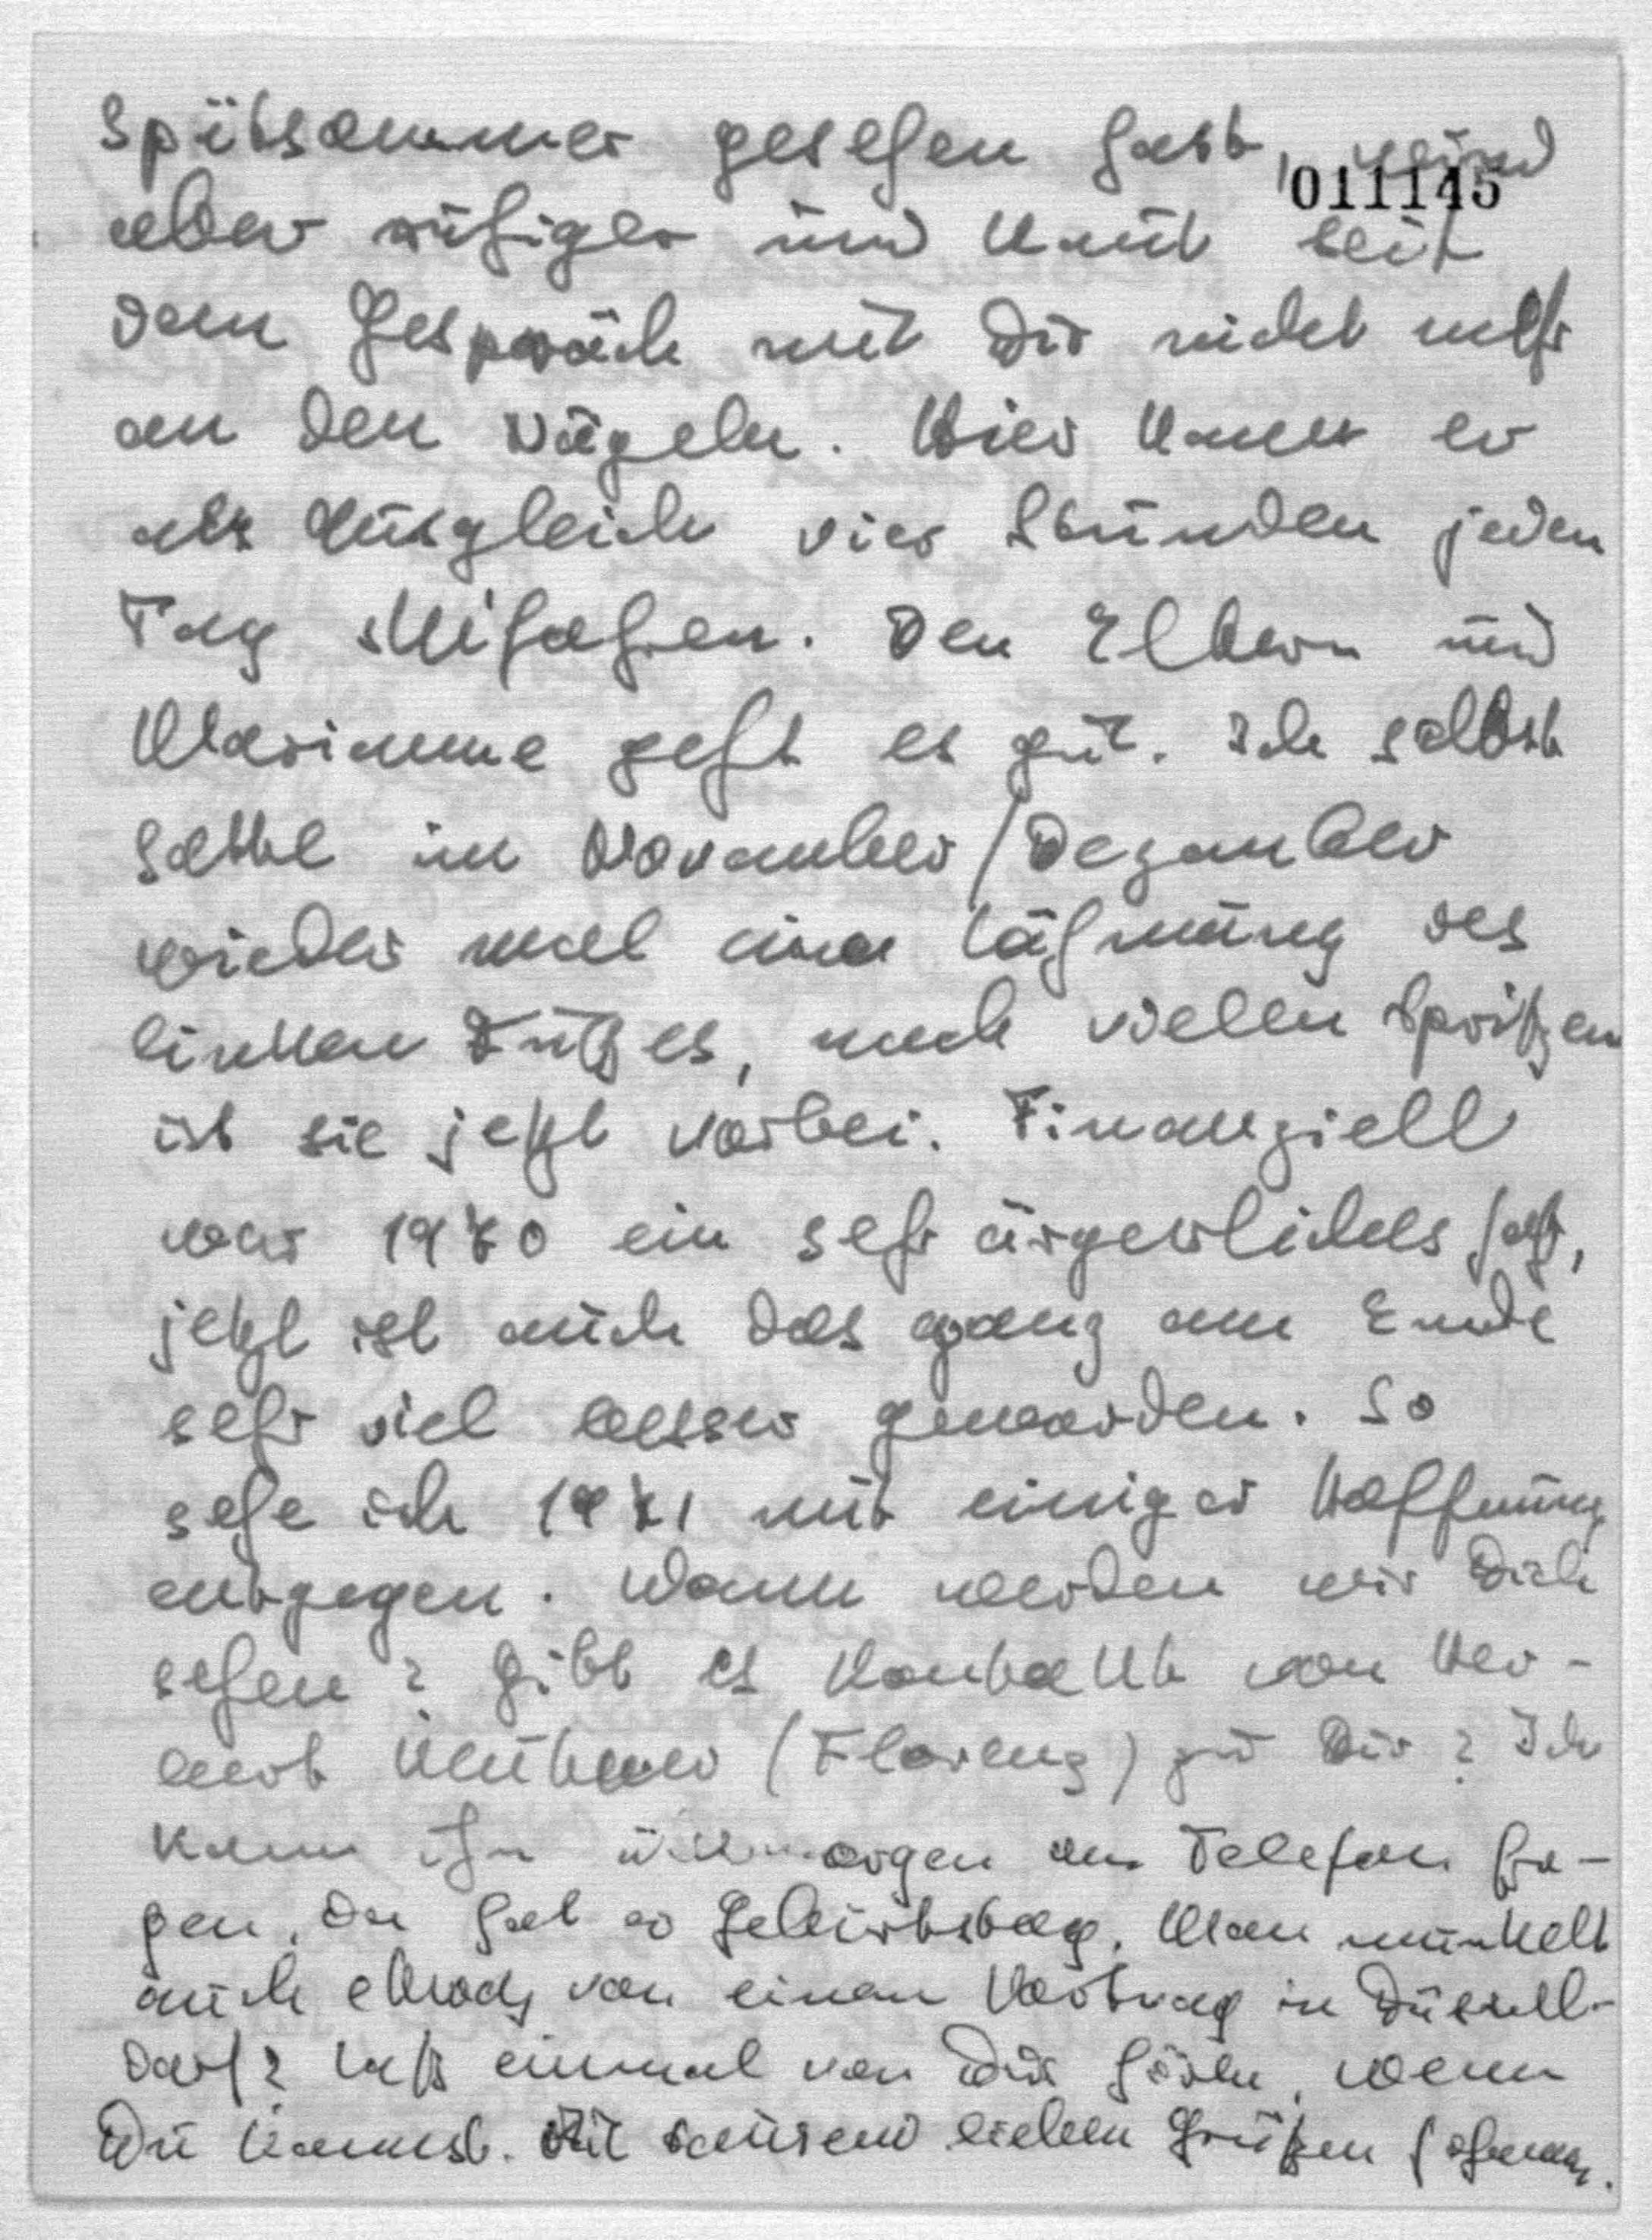 Spätsommer gesehen hast, wird
011145
aber ruhiger und kaut seit
dem Gespräch mit Dir nicht mehr
an den Nägeln. Hier kann er
als Ausgleich vier Stunden jeden
Tag skifahren. Den Eltern und
Marianne geht es gut. Ich selbst
hatte im November/Dezember
wieder mal eine Lähmung des
linken Fußes, nach vielen Spritzen
ist sie jetzt vorbei. Finanziell
war 1970 ein sehr ärgerliches Jahr,
jetzt ist auch das ganz am Ende
sehr viel besser geworden. So
sehe ich 1971 mit einiger Hoffnung
entgegen. Wann werden wir Dich
sehen? Gibt es Kontakt von Her-
bert (Florenz) zu Dir? Ich
kann ihn übermorgen am Telefon fra-
gen, da hat er Geburtstag. Man munkelt
auch etwas von einem Vortrag in Düssel-
dorf? Laß einmal von Dir hören, wenn
Du kannst. Mit tausend lieben Grüßen